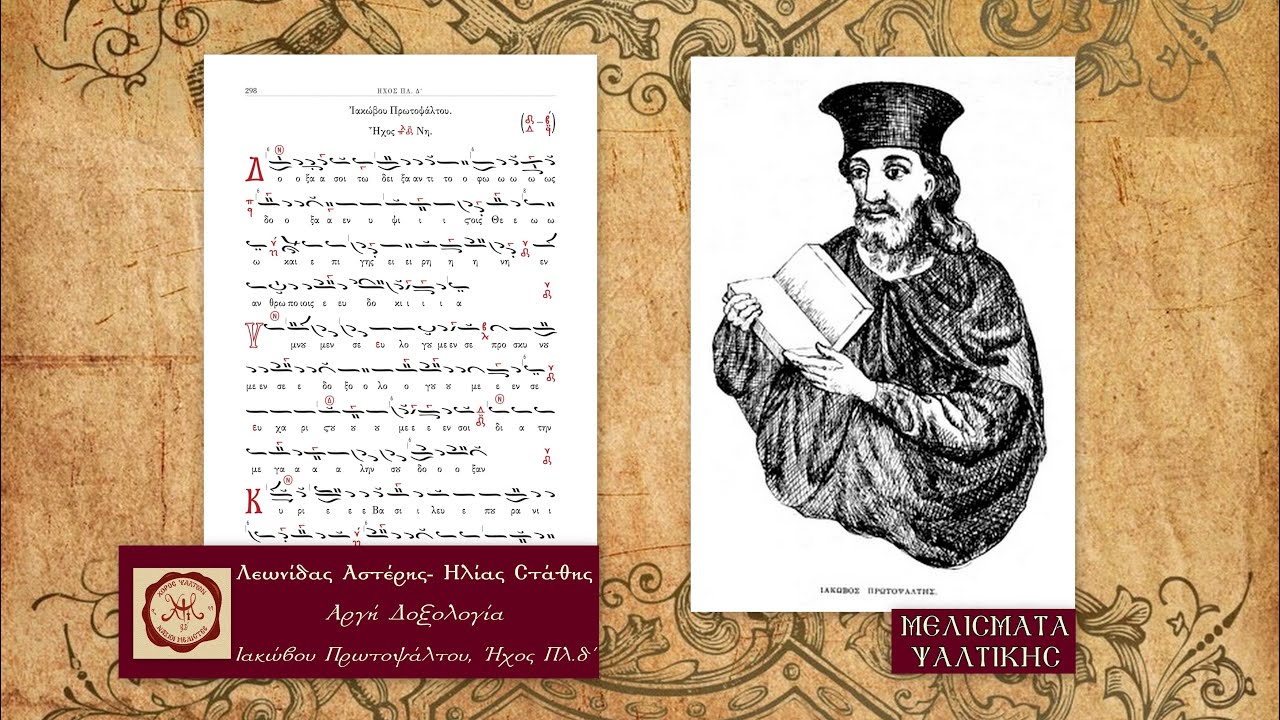 298
ΗΧΟΣ ΠΛ. Δ΄
Ἰακώβου Πρωτοψάλτου.
Ἦχος Νη.
Δ ο ο ξα α σοι τω δει ξα αν τι το ο φω ω ω ως
δο ο ξα α εν υ ψι ι ις Θε ε ω ω
ω και ε πι γης ει ει ρη η η νη εν
αν θρω ποι οις ε ευ δο κι ι ι ι α
μνου μεν σε ευ λο γου με εν σε προ σκυ νου
με εν σε ε δο ξο λο ο γου ου με ε εν σε
ευ χα ρις με ε ε εν σοι δι α την
με γα α α α λην σου δο ο ο ξαν
Κ υ ρι ε ε ε Βα σι λευ ε που ρα νι ι
Λεωνίδας Αστέρης- Ηλίας Στάθης
Αργή Δοξολογία
Ιακώβου Πρωτοψάλτου, Ήχος Πλ.δ΄
ΧΟΡΟΣ ΨΑΛΤΩΝ
ΙΑΚΩΒΟΣ ΠΡΩΤΟΨΑΛΤΗΣ.
ΜΕΛΙΣΜΑΤΑ
ΨΑΛΤΙΚΗΣ